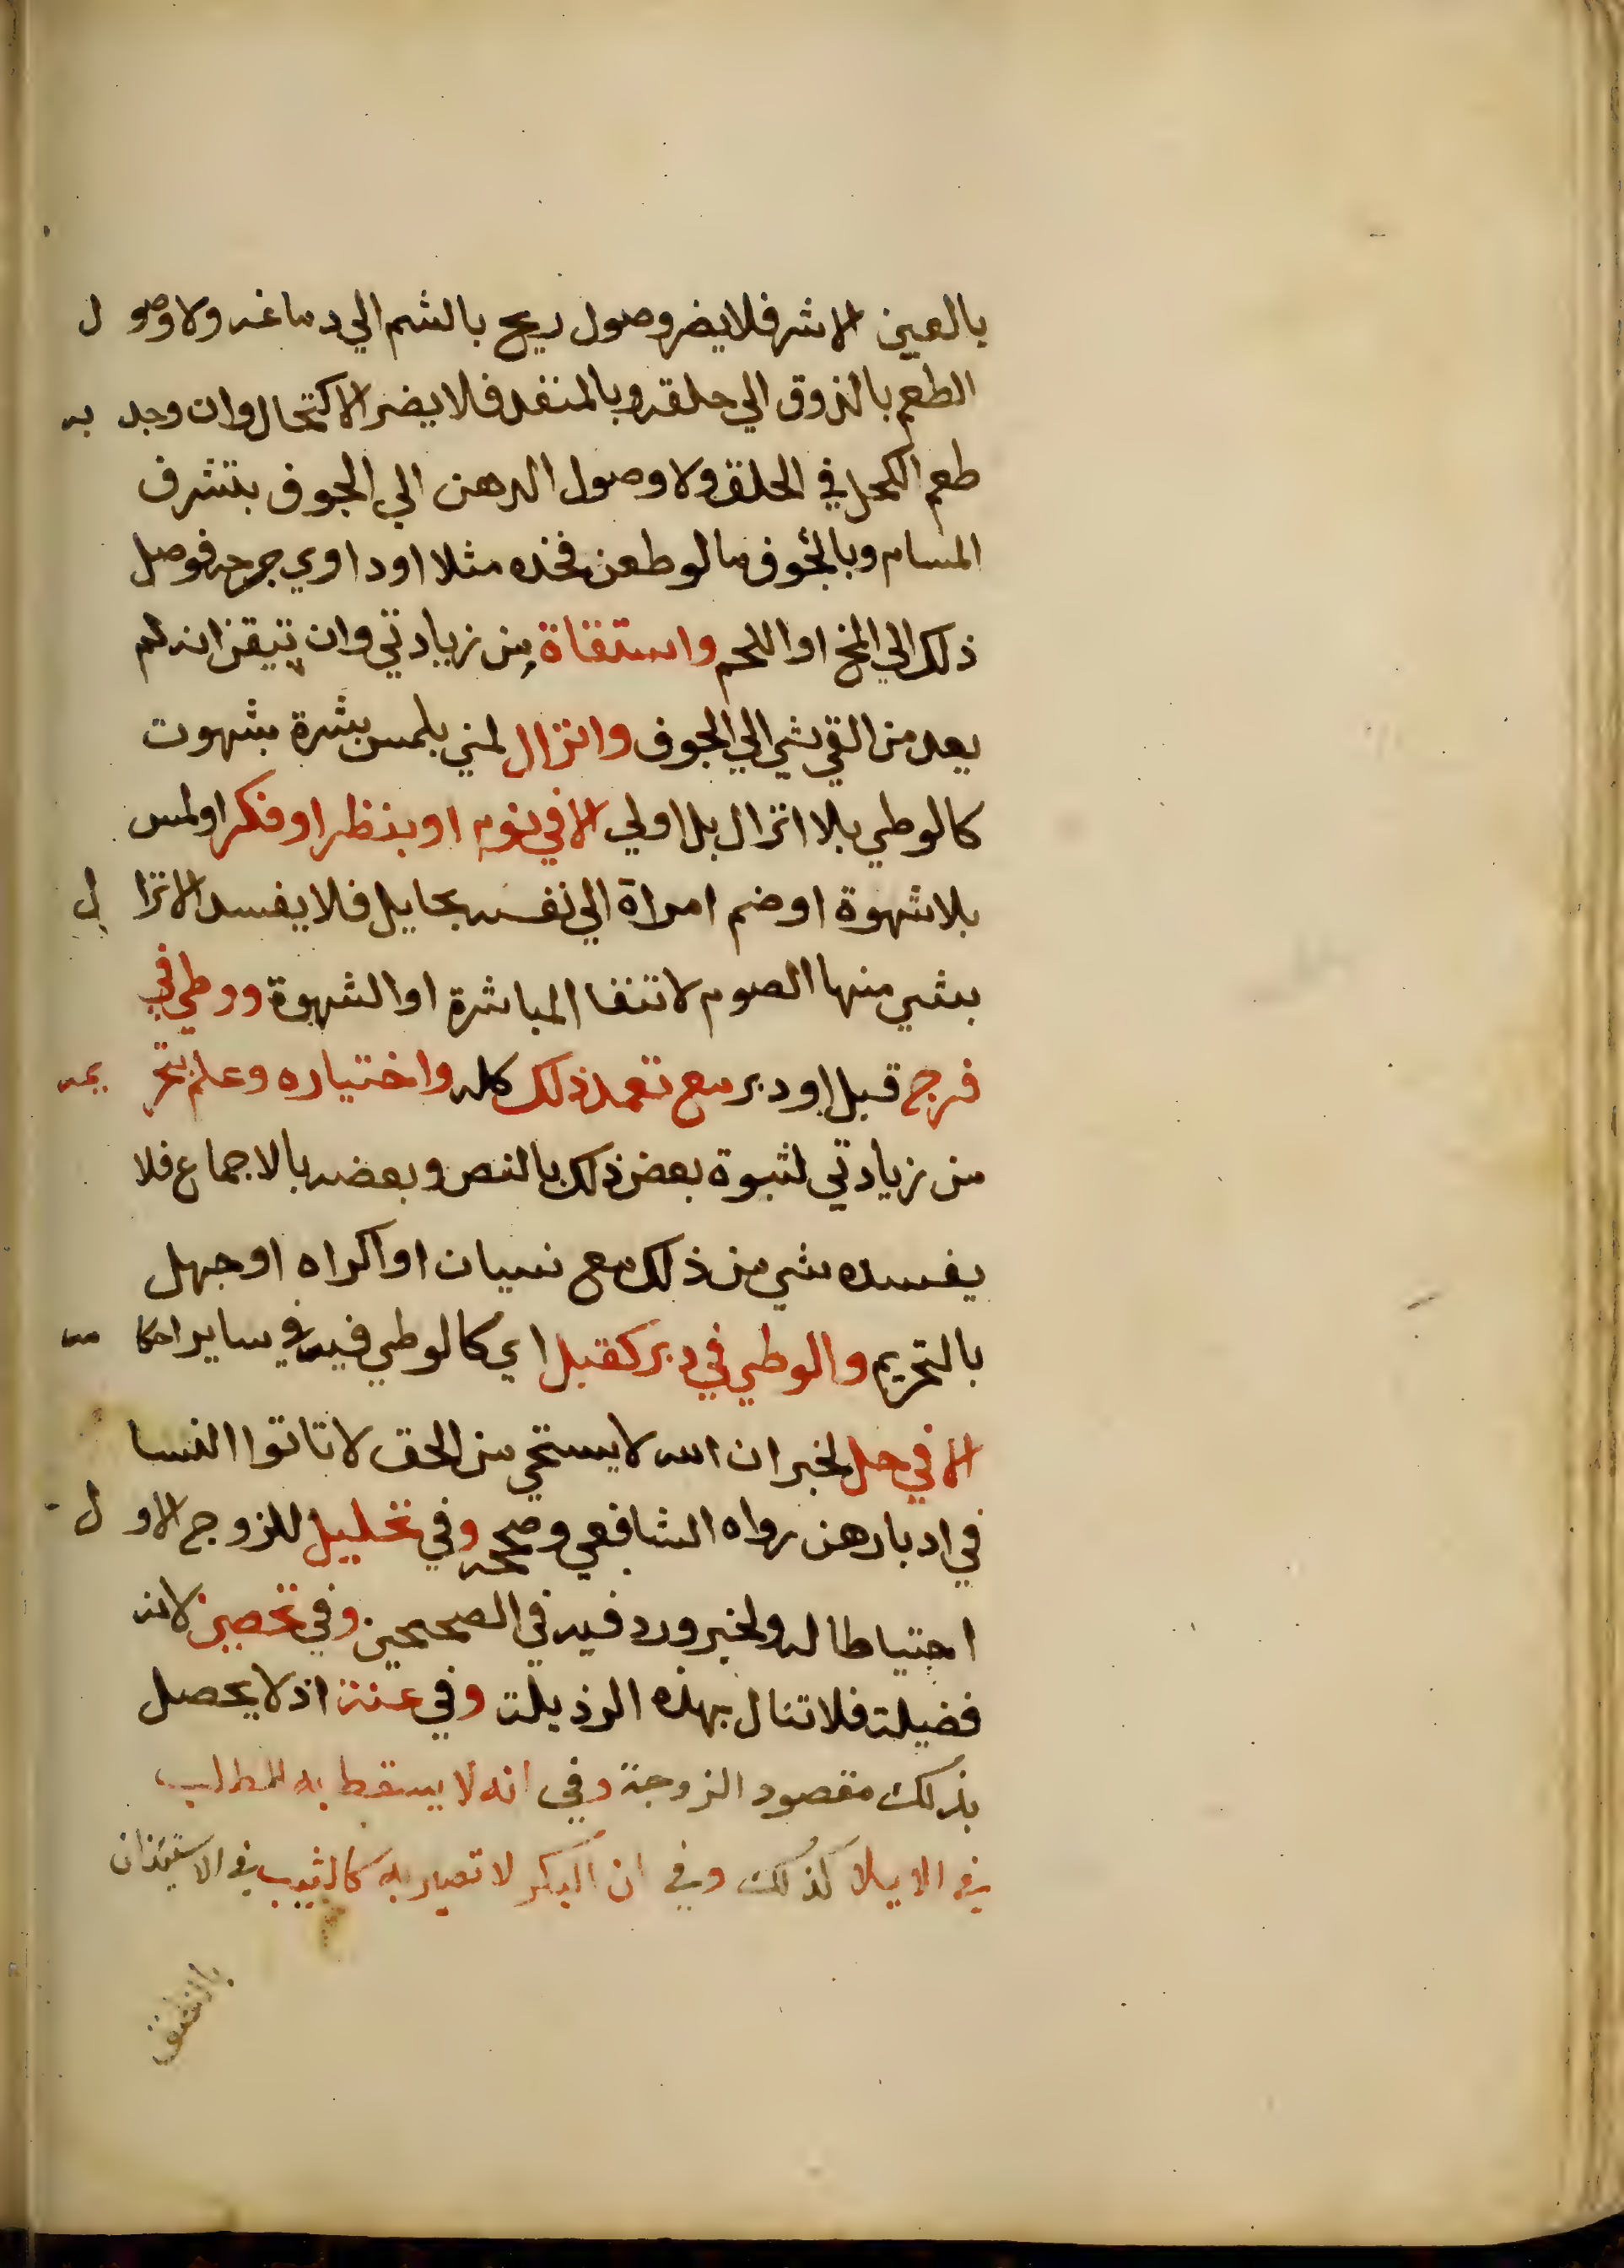 بالعين الاثر فلا يضر وصول ريح بالشم الي دماغه ولا وصول
الطعم بالذوق الي حلقه وبالمنفد فلا يضر الاكتحال وان وجد به
طعم الكحل في الحلق ولا وصول الدهن الي الجوف بتشرف
المسام وبالجوف ما لو طعن فخذه مثلا او داوي جرحه فوصل
ذلك الي المخ او اللحم واستقاة من زيادتي وان تيقن انه لم
يعد من القي شي الي الجوف وانزال لمني بلمس بشرة بشهوت
كالوطي بلا انزال بل اولي الا في نوم او بنظر او فكر او لمس
بلا شهوة او ضم امراة الي نفسه بحايل فلا يفسد الانزال
بشي منها الصوم لانتفا المباشرة او الشهوة ووطي في
فرج قبل او دبر مع تعمد ذلك كله واختياره وعلم بتحريمه
من زيادتي لثبوة بعض ذلك بالنص وبعضه بالاجماع فلا
يفسده شي من ذلك مع نسيان او اكراه او جهل
بالتحريم والوطي في دبر كقبل اي كالوطي فيه في ساير احكامه
الا في حل لخبر ان الله لا يستحي من الحق لا تاتوا النسا
في ادبارهن رواه الشافعي وصححه وفي تحليل للزوج الاول
احتياطا له ولخبر ورد فيه في الصحيحين وفي تحصين لانه
فضيلة فلا تنال بهذه الرذيلة وفي عنة اذ لا يحصل
بذلك مقصود الزوجة وفي انه لا يسقط به المطلب
في الايلا كذلك وفي ان البكر لا تصير به كالثيب في الاستيذان
بالنطق